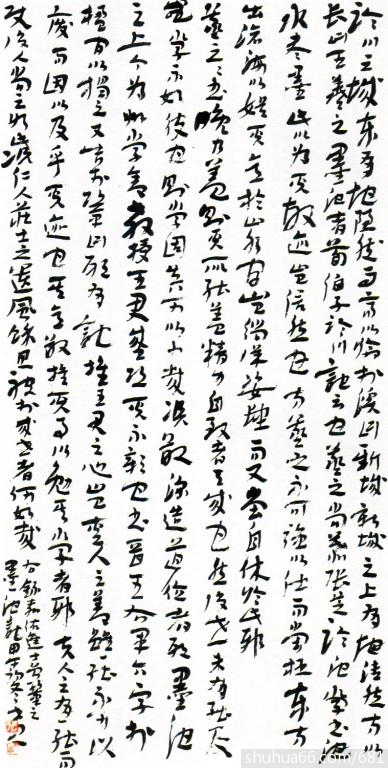 临川之城东有地隐然而高以临于溪曰新城新城之上有池洼然而方以
长曰王羲之之墨池者荀伯子临川记云也羲之尝慕张芝临池学书池
水尽墨此以为其故迹岂信然也方羲之不可强以仕而尝极东方
出沧海以娱其意於山水间岂徜徉姿肆而又尝自休於此邪
羲之之书晚乃善则其所能盖精力自致者天成也然后世未有能及
岂学不如彼也则学固岂可以少哉况欲深造道德者邪墨池
之上今为州学舍教授王君盛恐其不彰也书晋王右军六字于
楹间以揭之又告于巩曰愿有记推王君之心岂爱人之善虽能不以
废而因以及乎其迹也其亦欲推其事以勉其学者邪夫人之有一能而
使后人尚之如此况仁人庄士之遗风余思被于来世者何如哉
墨池记
shuhua66.com/681